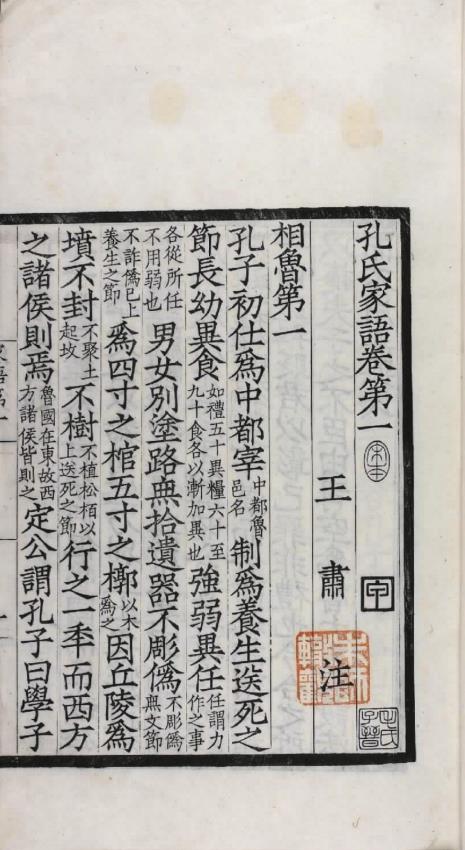 孔氏家語卷第一
宋本
甲
毛氏子晉
王肅注
相魯第一
孔子初仕爲中都宰中都魯邑名制爲養生送死之
節長幼異食如禮五十異糧六十至九十食各以漸加異也強弱異任任謂力作之事
各從所任不用弱也男女別塗路無拾遺器不彫僞不彫僞無文節
不詐僞已上養生之節爲四寸之棺五寸之槨以木爲之因丘陵爲
墳不封不聚土起坟不樹不植松栢以上送死之節行之一秊而西方
之諸侯則焉魯國在東故西方諸侯皆則之定公謂孔子曰學子